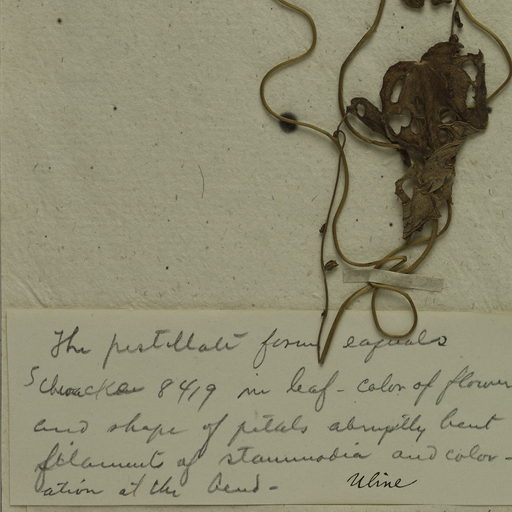 The pistillate form equals
Schwacke 8419 in leaf - color of flower
and shape of petals abruptly bent
filaments of stammodia and color-
ation at the bend -
Uline